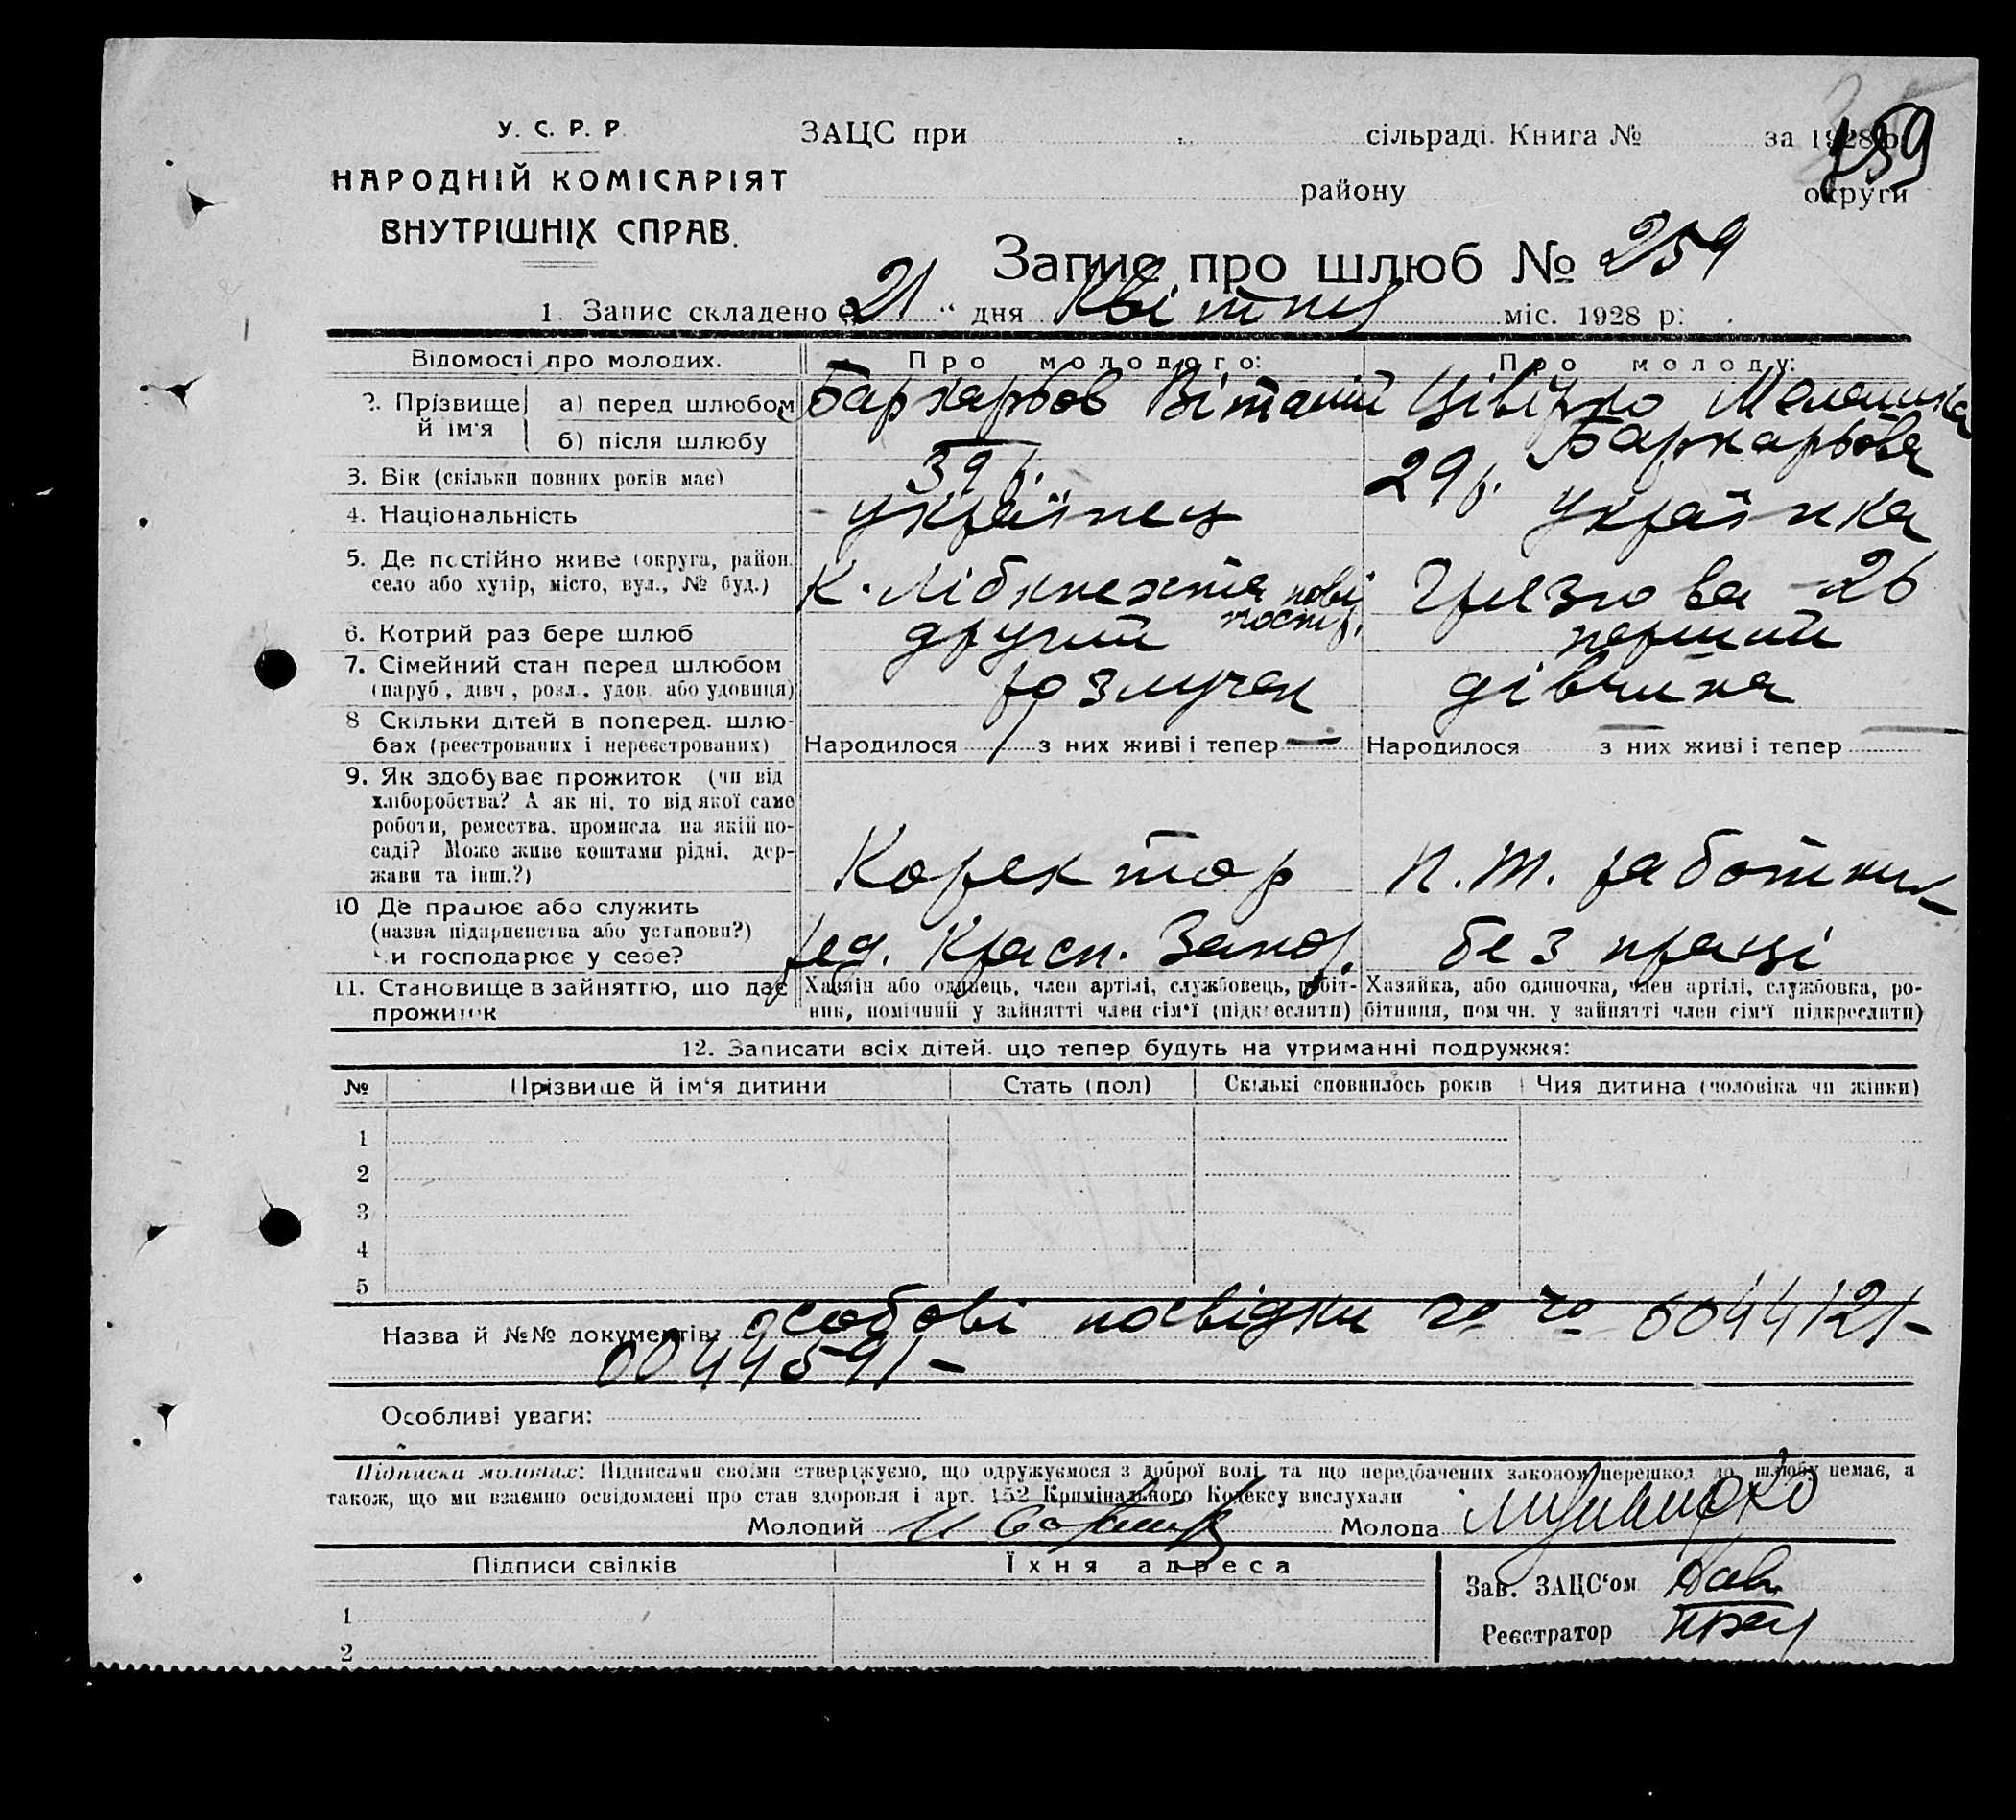 159
У. С. Р. Р.
НАРОДНІЙ КОМІСАРІЯТ
ВНУТРІШНІХ СПРАВ.
ЗАЦС при сільраді. Книга № за 1928 р.
району округи
Запис про шлюб № 259
1. Запис складено „21“ дня Квітня міс. 1928 р.
Відомості про молодих. Про молодого: Про молоду:
2. Прізвище й ім'я а) перед шлюбом Бархарьов Віталій Цівірко Меланка
б) після шлюбу Бархарьова
3. Вік (скільки повних років має) 39 р. 29 р.
4. Національність українец українка
5. Де постійно живе (округа, район, К. Лібкнехта нові Грязнова 26
село або хутір, місто, вул., № буд.)
6. Котрий раз бере шлюб другий перший
7. Сімейний стан перед шлюбом розлучен дівчина
(паруб., дівч., розл., удов. або удовиця)
8 Скільки дітей в поперед. шлю-
бах (реєстрованих і нереєстрованих) Народилося з них живі і тепер — Народилося — з них живі і тепер —
9. Як здобуває прожиток (чи від
хліборобства? А як ні, то від якої саме
роботи, ремества, промисла на якій по-
саді? Може живе коштами рідні, дер-
жави та інш.?) Коректор п. т. работниц
10 Де працює або служить
(назва підприємства або установи?) ред. Красн. Запор. без праці
чи господарює у себе?
11. Становище в зайняттю, що дає Хазяїн або одинець, член артілі, службовець, робіт- Хазяйка, або одиночка, член артілі, службовка, ро-
прожиток ник, помічний у зайнятті член сім'ї (підкреслити) бітниця, помічн. у зайнятті член сім'ї підкреслити)
12. Записати всіх дітей, що тепер будуть на утриманні подружжя:
№ Прізвище й ім'я дитини Стать (пол) Скількі сповнилось років Чия дитина (чоловіка чи жінки)
1
2
3
4
5
Назва й №№ документів: особові посвідки 0044121-
0044591-
Особливі уваги:
Підписки молодих: Підписами своїми стверджуємо, що одружуємося з доброї волі та що передбачених законом перешкод до шлюбу немає, а
також, що ми взаємно освідомлені про стан здоровля і арт. 152 Кримінального Кодексу вислухали
Молодий Молода
Підписи свідків Їхня адреса
Зав. ЗАЦС'ом
1
Реєстратор
2